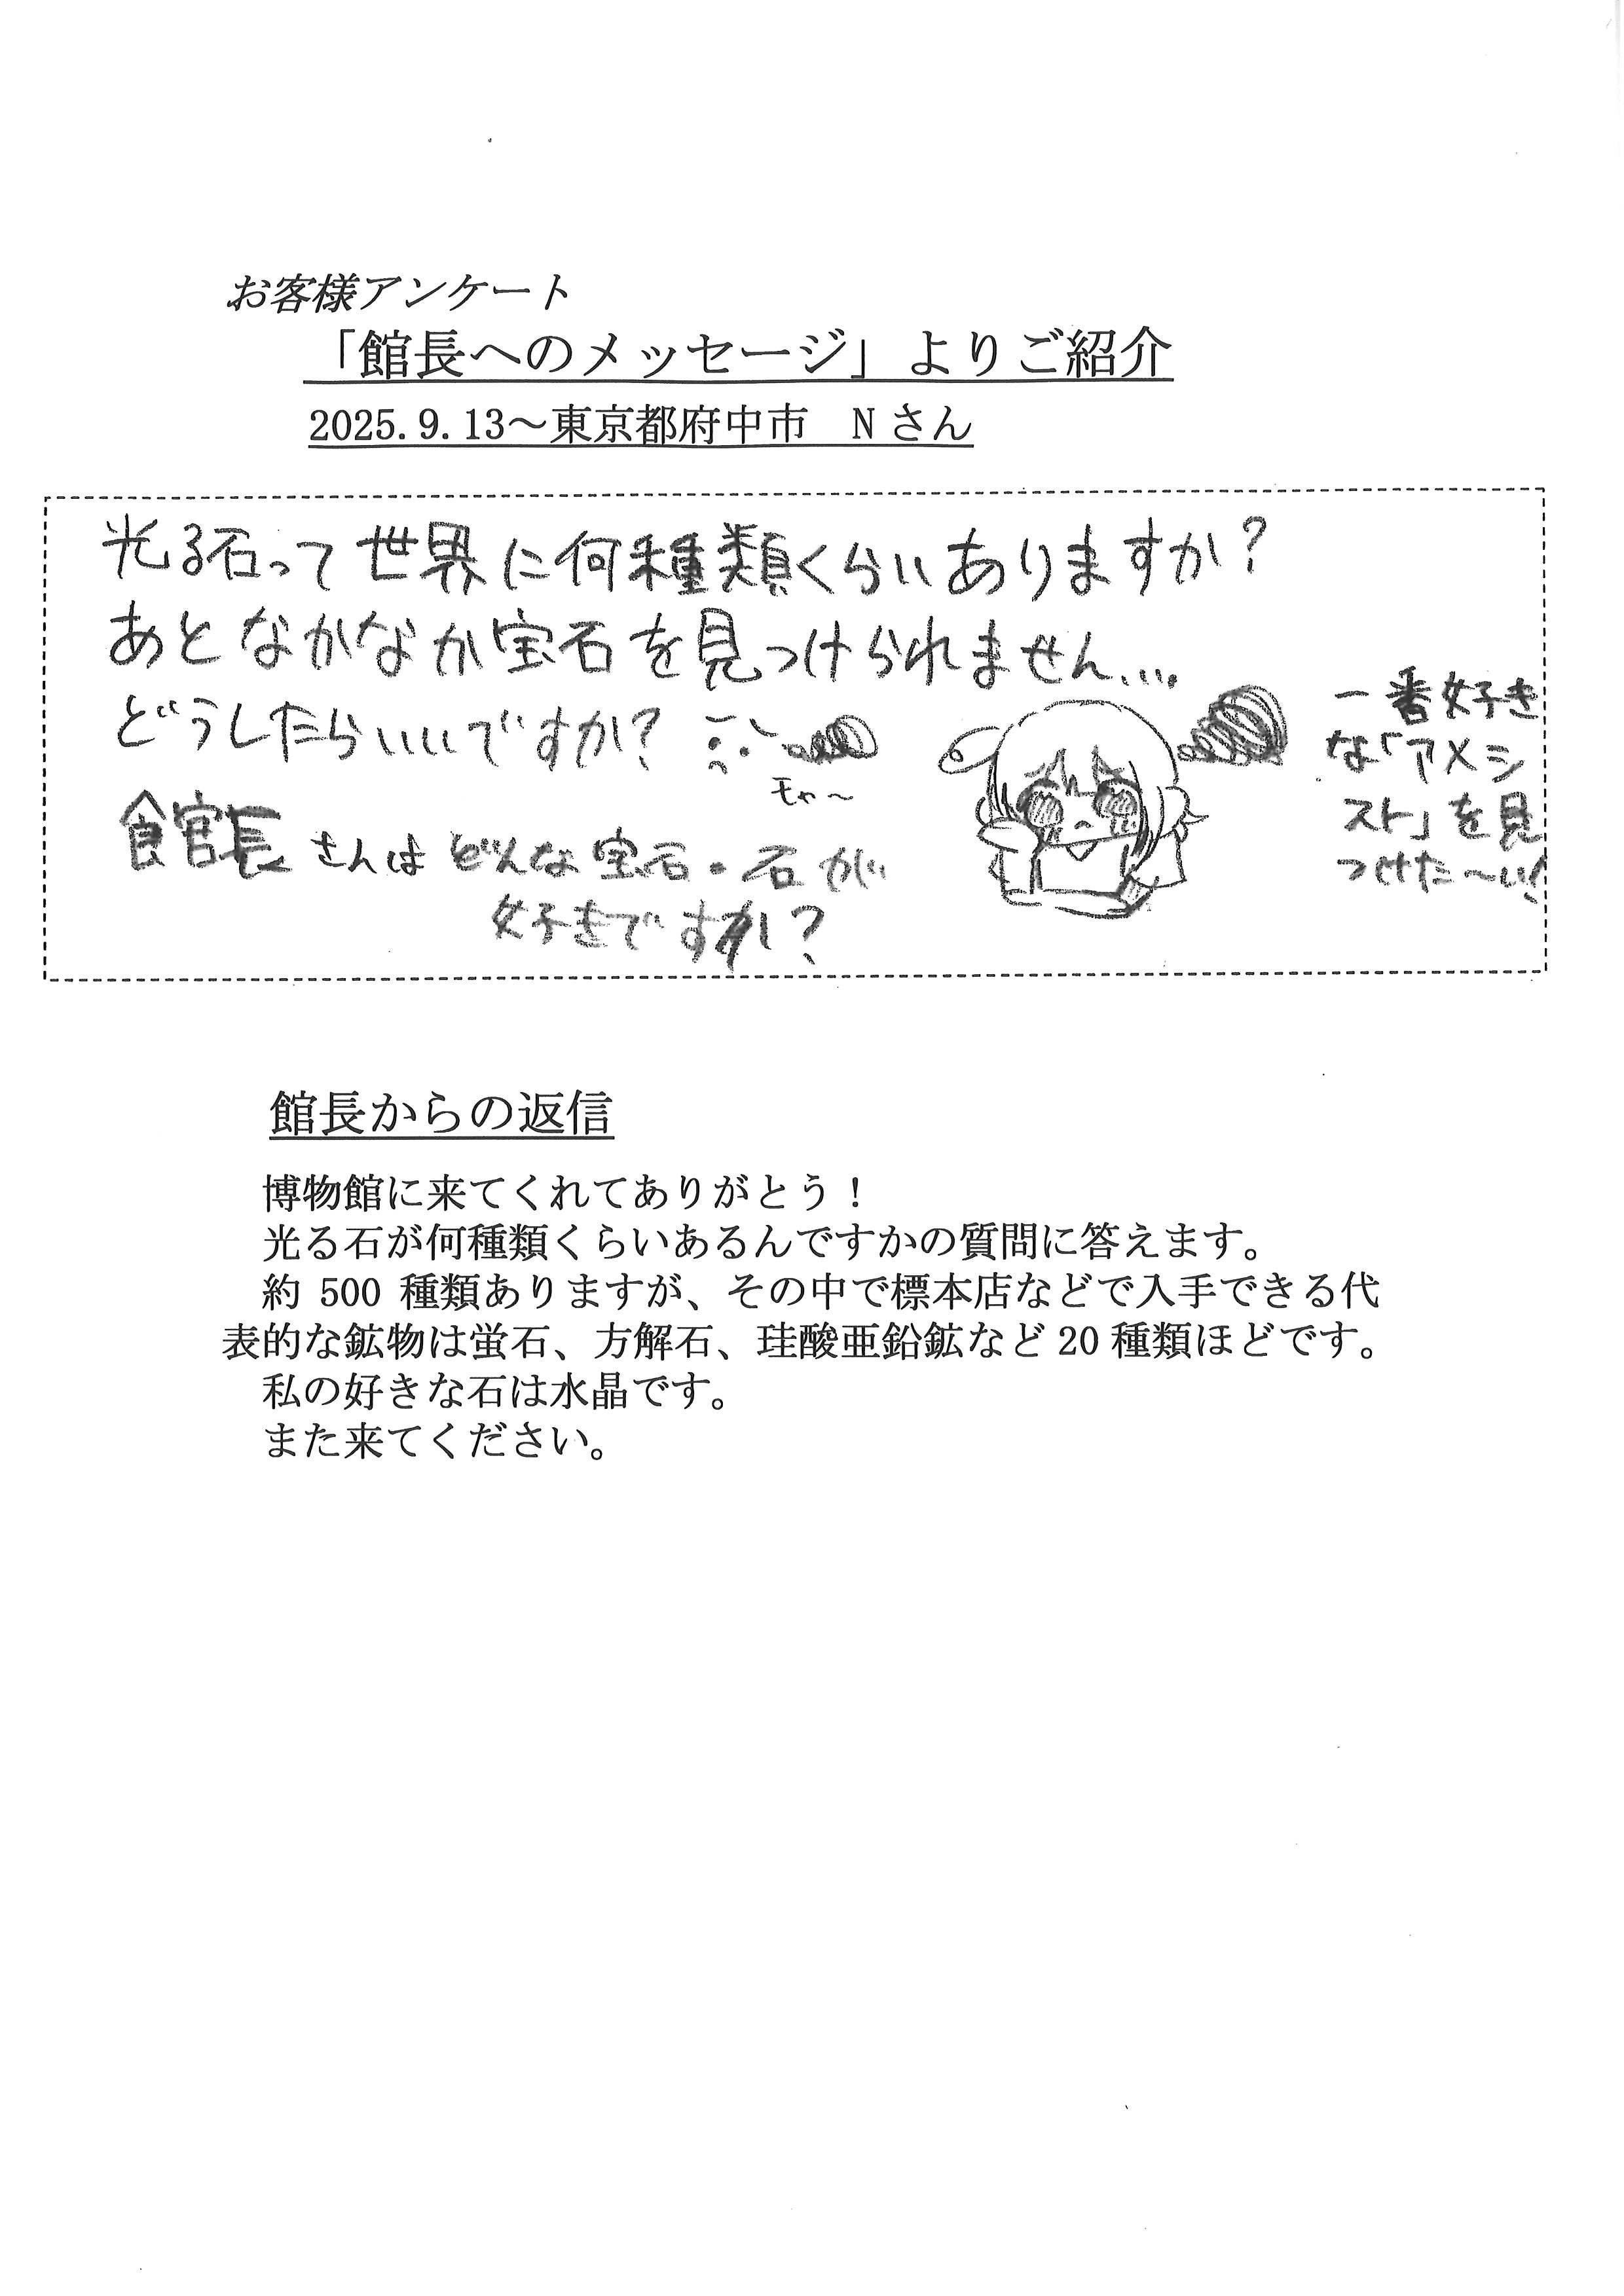 お客様アンケート
「館長へのメッセージ」よりご紹介
2025.9.13～東京都府中市　Nさん
光る石って世界に何種類くらいありますか？
あとなかなか宝石を見つけられません....
どうしたらいいですか？
モヤ～
館長さんはどんな宝石・石が
好きですか？
一番好き
な「アメシ
スト」を見
つけた～い！
館長からの返信
博物館に来てくれてありがとう！
光る石が何種類くらいあるんですかの質問に答えます。
約 500 種類ありますが、その中で標本店などで入手できる代
表的な鉱物は蛍石、方解石、珪酸亜鉛鉱など 20 種類ほどです。
私の好きな石は水晶です。
また来てください。